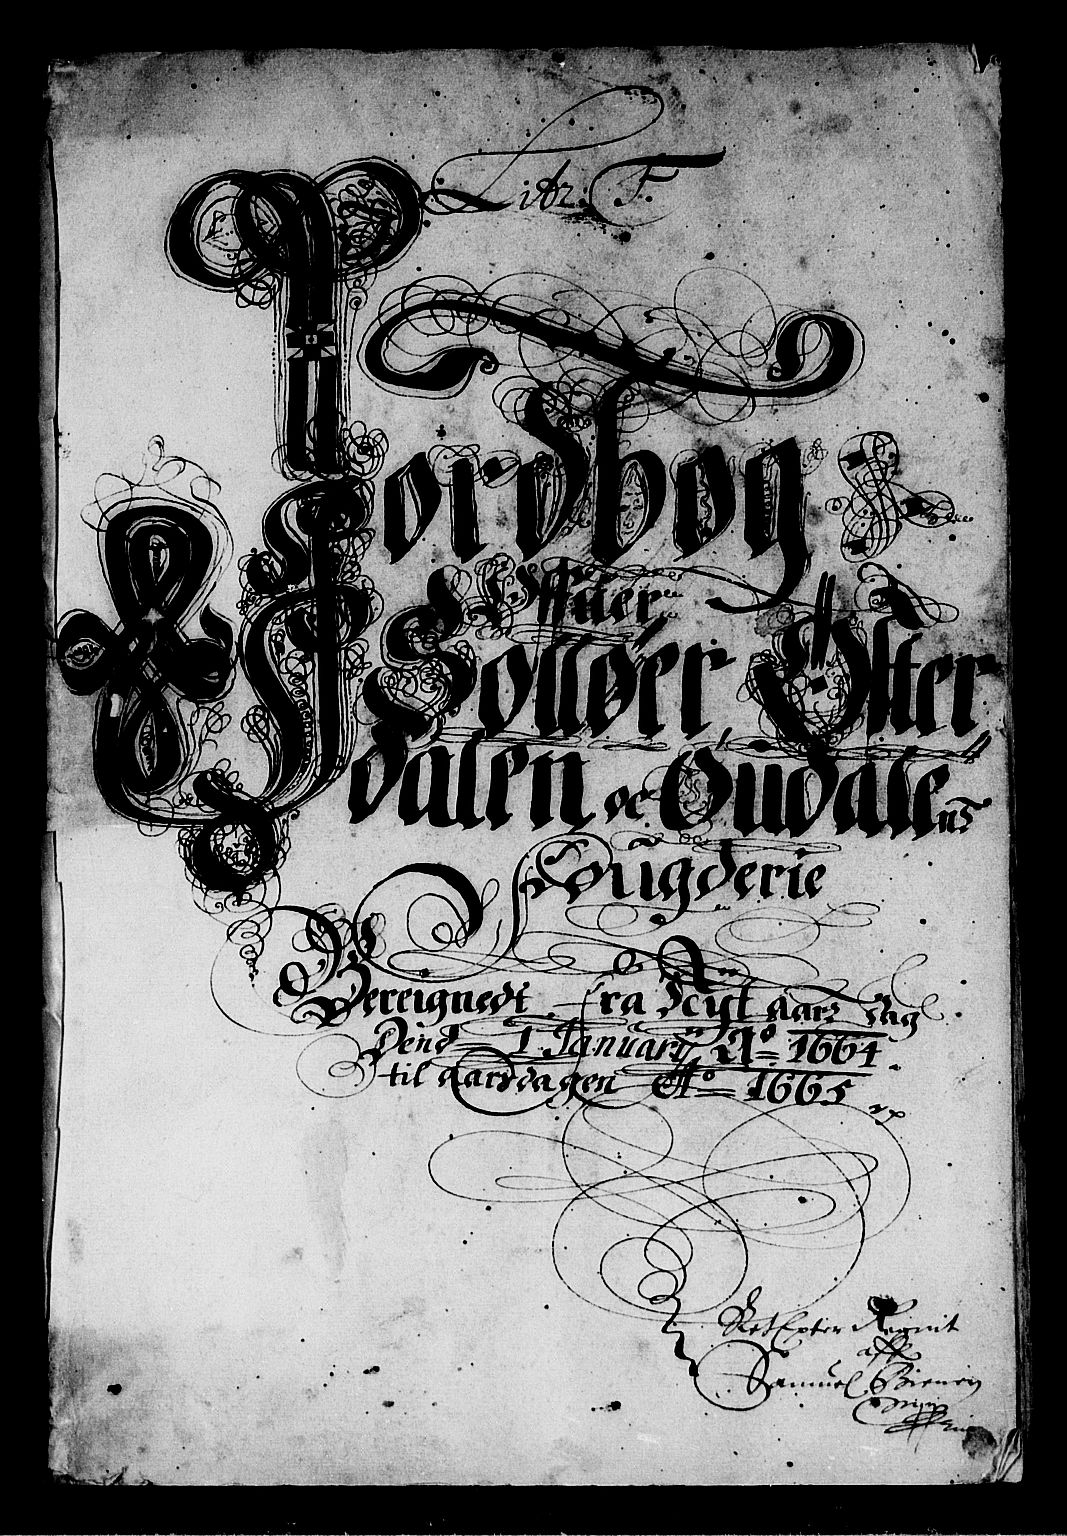 Litr: F
Jordbog
Offuer
Solløer Øster
dalen oc Oudalens
Fougderie
Bereignedt fra Nyt aars dag
Dend 1 January Aº 1664
til aarsdagen Aº 1665
Ret Epter Regnit
aff
Samuel